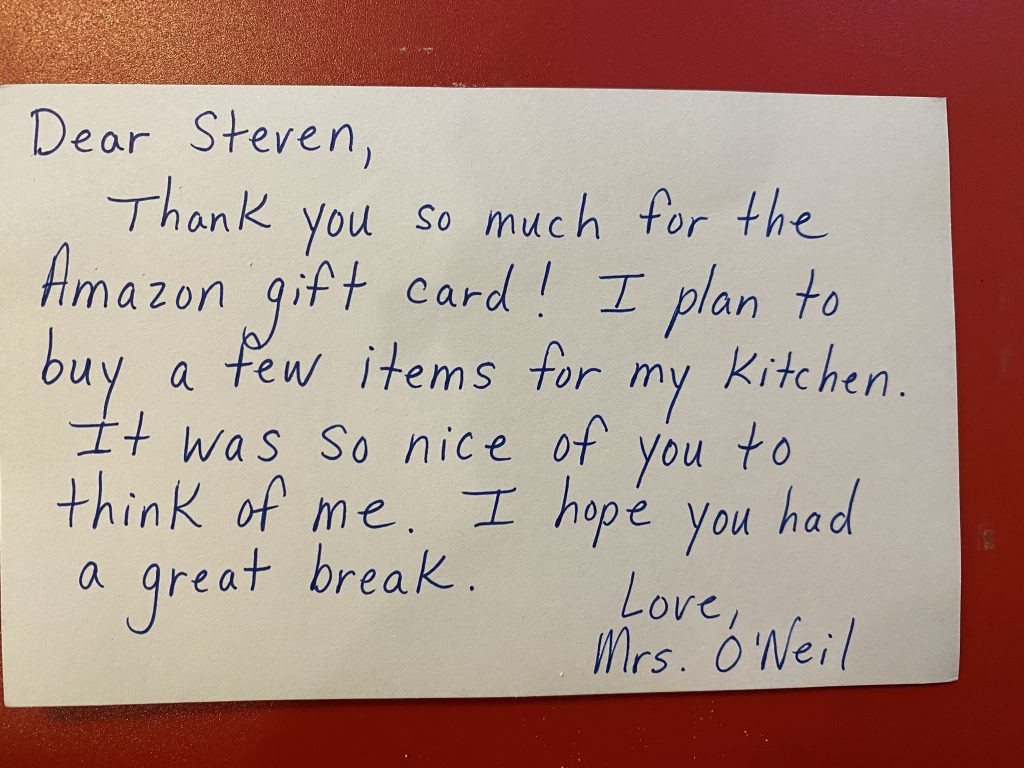 Dear Steven,
Thank you so much for the
Amazon gift card! I plan to
buy a few items for my kitchen.
It was so nice of you to
think of me. I hope you had
a great break.
Love,
Mrs. O'Neil